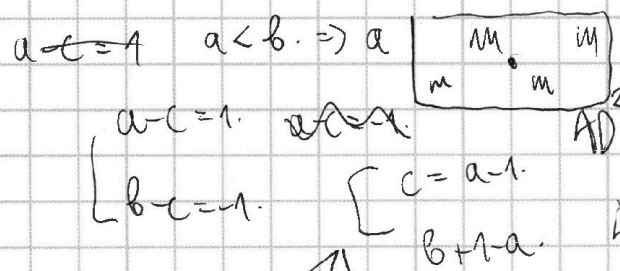 a-c=1 a<b. => a
m m
m m
a-c=1. a-c=-1.
AD²
b-c=-1.
c=a-1.
b+1-a.